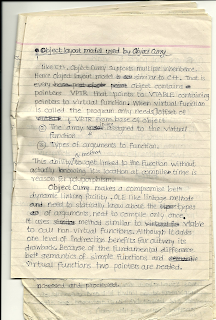 Object layout model used by Object Curry
Like C++, Object Curry supports multiple inheritance.
Hence object layout model is similar to C++. That is
every object contains
pointers VPTR that points to VTABLE containing
pointers to virtual function. When virtual function
is called the program only needs offset of
VPTR from base of object.
(i) The array assigned to the virtual
function
(ii) Types of arguments to function.
This ability to get linked to the function without
actually knowing its location at compile time is
called
Object Curry makes a compromise b/w
dynamic linking facility
and need to statically know about the types
of arguments, need to compile only once.
it uses method similar to Vtable
to call non virtual functions. Although it adds
one level of indirection benefits far outway its
drawbacks. Because of the fundamental difference
b/w semantics of simple functions and
virtual functions two pointers are needed.